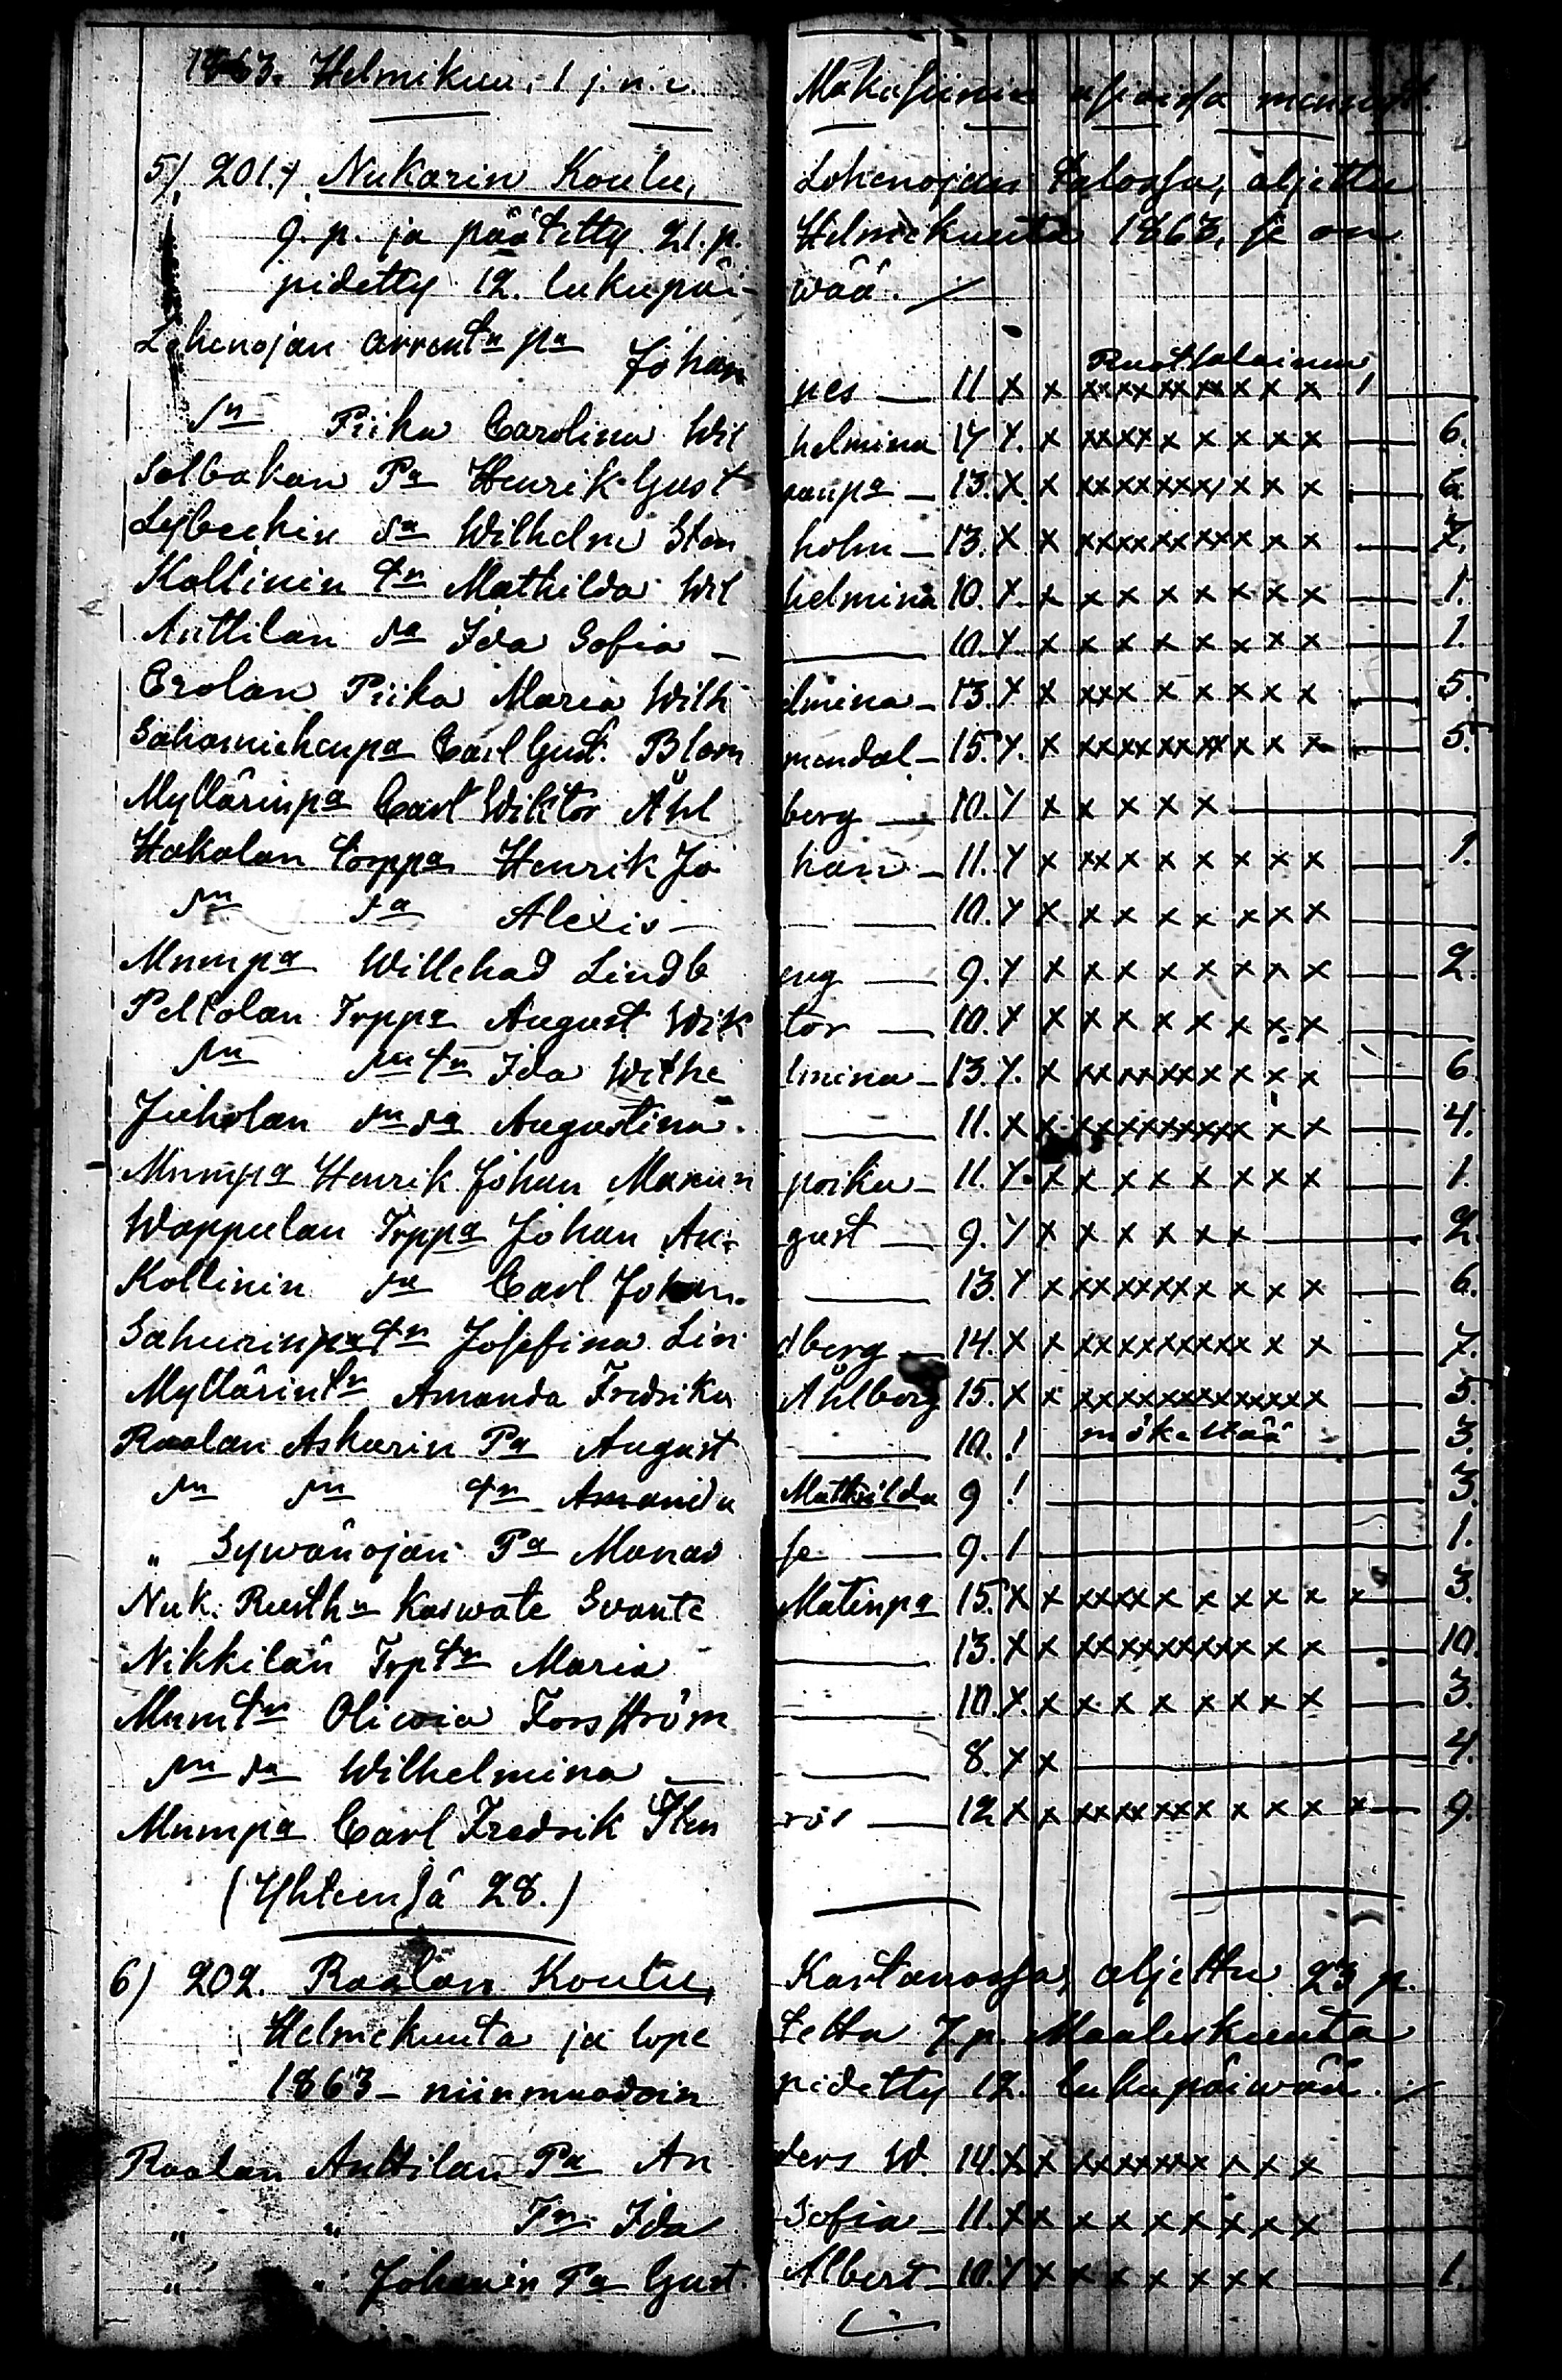 1863. Helmikuu. 1 j. n. e. Makasiinin asioissa
5). 201.) Nukarin Koulu, Lohenojan talossa, aljettu
9. p. ja päätetty 21. p. Helmekuuta 1863, se on
pidetty 12. lukupäi- wää. ./.
Ruotsalainen
Lohenojan arrent. pa Johan nes — 11 x x xxxxxxxx x x x 1 —
sn Piika Carolina Wil helmina 17 x. x xxxx x x x x x — 6.
Solbakan Pa Henrik Gust
13. x x xxxxxxx x x x — 6.
Lybeckin sa Wilhelm Sten holm — 13. x x xxxxxxxx x x — 7.
Kollinin tr Mathilda Wil helmina 10. x. x x x x x x x x — 1.
Anttilan sa Ida Sofia — — 10. x. x x x x x x x x — 1.
Erolan Piika Maria Wilh elmina — 13. x x xxx x x x x x — 5.
Carl Gust. Blom mendal — 15. x. x xxxxxxxx x x x — 5.
Myllärinpa Carl Wiktor Åhl berg — 10. x x x x x x —
Hakalan torppa Henrik Jo han — 11. x x xx x x x x x x — 1.
sn sa Alexis — — 10. x x x x x x x x x —
Mnmpa Willehad Lindb erg — 9. x x x x x x x x x — 2.
Peltolan Trppa August Wik tor — 10. x x x x x x x x x —
sn sn tr Ida Wilhe lmina — 13. x. x xxxxxx x x x x — 6
Juholan sn sa Augustina. — 11. x x xxxxxxxxx x x — 4.
Mnmpa Henrik Johan Manin poika — 11. x. x x x x x x x x — 1.
Wappulan Trppa Johan Au- gust — 9. x x x x x x x — 2.
Kollinin sa Carl Johan. — 13. x x xxxxxxx x x x x — 6.
Josefina Lin dberg — 14. x x xxxxxxxxx x x — 7.
Myllärintr Amanda Fredrika Åhlberg 15. x x xxxxxxxxxxxxx — 5
Raalan Askarin Pa August — 10. ! — 3.
sn sn tr Amanda Mathilda 9 ! — 3.
„ Sywänojan Pa Manas se — 9. ! — 1.
Nuk. Rusth. Kaswate Svante Matinpa 15. x x xxxxx x x x x x x — 3.
Nikkilän Trptr Maria — 13. x x xxxxxxxxx x x — 10.
Mnmtr Oliwia Forsström — 10. x. x x x x x x x x — 3.
sn sa Wilhelmina — — 8. x x — 4.
Mnmpa Carl Fredrik Sten ros — 12 x x xxxxxxx x x x x x — 9.
(Yhteensä 28.)
6) 202. Raalan Koulu, Kartanossa, aljettu 23 p.
Helmekuuta ja lope tettu 7. p. Maaliskuuta
1863 — niinmuodoin pidetty 12. lukupäiwää. ./.
Raalan Anttilan Pa An ders W. 14. x. x xxxxxxx x x x —
„ „ Tr Ida Sofia — 11. x x x x x x x x x —
„ „ Johanin Pa Gust. Albert — 10. x x x x x x x x — 1.